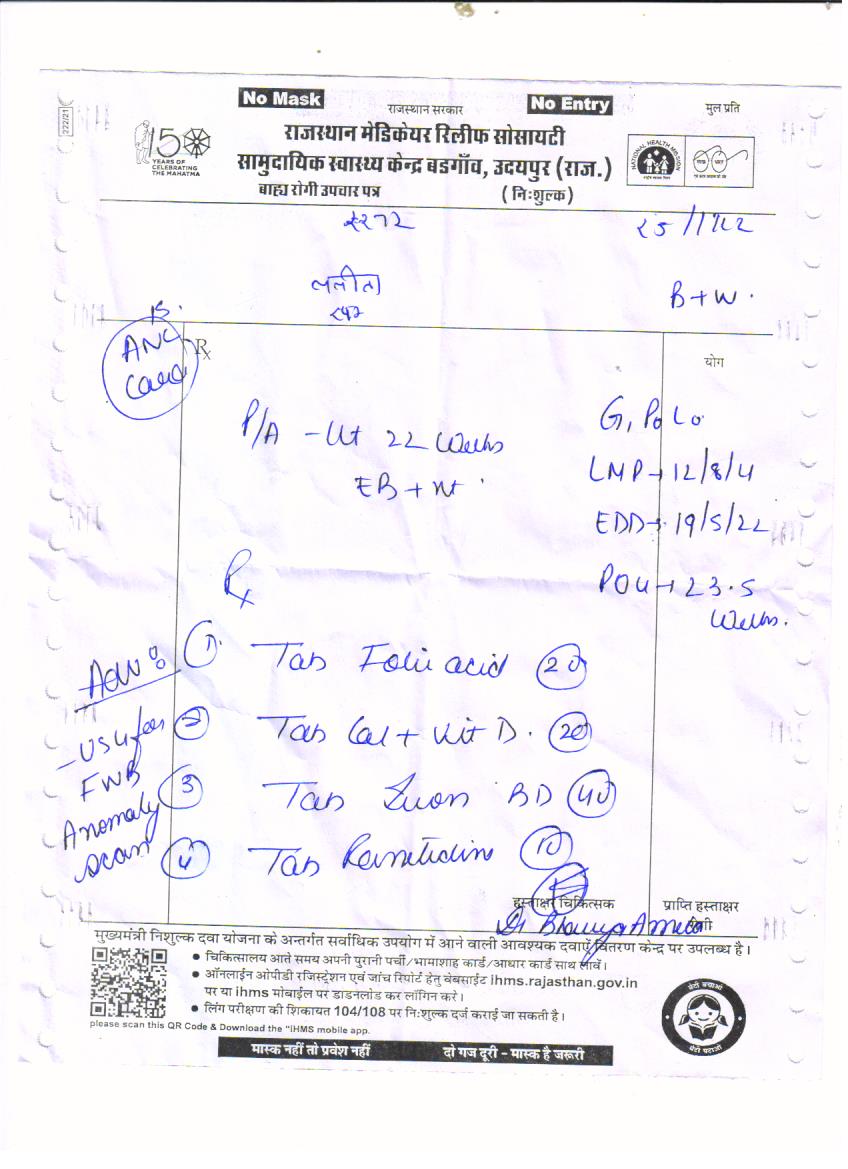 222/21
No Mask
राजस्थान सरकार
No Entry
मुल प्रति
150
YEARS OF
CELEBRATING
THE MAHATMA
राजस्थान मेडिकेयर रिलीफ सोसायटी
सामुदायिक स्वास्थ्य केन्द्र बडगाँव, उदयपुर (राज.)
बाह्य रोगी उपचार पत्र
( निःशुल्क )
NATIONAL HEALTH MISSION
ललीता
B + W.
ANC
Card
Rx
योग
P/A - Ut 22 Weeks
G1 P0 L0
LMP → 12/8/21
EDD → 19/5/22
POG → 23.5
Weeks.
Rx
Adv:
1. Tab Folic acid (20)
- USG for
FWB
Anomaly
scan
2 Tab Cal + Vit D. (20)
3 Tab Iron BD (40)
4 Tab Ranitidine (10)
हस्ताक्षर चिकित्सक
प्राप्ति हस्ताक्षर
रोगी
मुख्यमंत्री निशुल्क दवा योजना के अन्तर्गत सर्वाधिक उपयोग में आने वाली आवश्यक दवाऐं वितरण केन्द्र पर उपलब्ध है।
• चिकित्सालय आते समय अपनी पुरानी पर्ची/भामाशाह कार्ड/आधार कार्ड साथ लावें।
• ऑनलाईन ओपीडी रजिस्ट्रेशन एवं जांच रिपोर्ट हेतु वेबसाईट ihms.rajasthan.gov.in
पर या ihms मोबाईल पर डाडनलोड कर लॉगिन करे।
• लिंग परीक्षण की शिकायत 104/108 पर निःशुल्क दर्ज कराई जा सकती है।
please scan this QR Code & Download the "iHMS mobile app.
बेटी बचाओ
बेटी पढाओ
मास्क नहीं तो प्रवेश नहीं
दो गज दूरी - मास्क है जरूरी